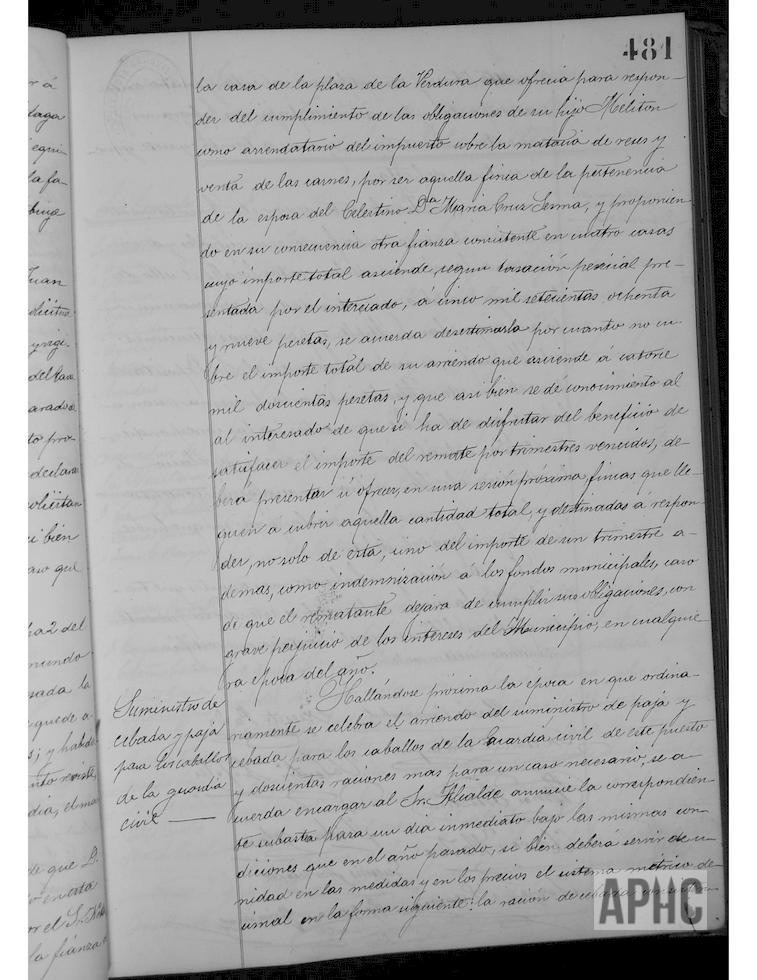 481
la casa de la plaza de la Verdura que ofrecia para respon-
der del cumplimiento de las obligaciones de su hijo Meliton
como arrendatario del impuesto sobre la matacia de reses y
venta de las carnes, por ser aquella finca de la pertenencia
de la esposa del Celestino Dª Maria Cruz Lerma, y proponien-
do en su consecuencia otra fianza consistente en cuatro casas
cuyo importe total asciende, segun tasación pericial pre-
sentada por el interesado, á cinco mil setecientas ochenta
y nueve pesetas, se acuerda desestimarla por cuanto no cu-
bre el importe total de su arriendo que asciende á catorce
mil doscientas pesetas, y que asi bien se dé conocimiento al
al interesado de que si ha de disfrutar del beneficio de
satisfacer el importe del remate por trimestres vencidos, de-
berá presentar ú ofrecer, en una sesión próxima, fincas que lle-
guen á cubrir aquella cantidad total, y destinadas á respon-
der, no solo de esta, sino del importe de un trimestre a-
demas, como indemnizacion á los fondos municipales, caso
de que el rematante dejara de cumplir sus obligaciones, con
grave perjuicio de los intereses del Municipio, en cualquie-
ra época del año.
Suministro de
cebada y paja
para los caballos
de la guardia
civil
Hallándose próxima la época en que ordina-
riamente se celebra el arriendo del suministro de paja y
cebada para los caballos de la Guardia civil de este puesto
y doscientas raciones mas para un caso necesario, se a-
cuerda encargar al Sr. Alcalde anuncie la correspondien-
te subasta para un dia inmediato bajo las mismas con-
diciones que en el año pasado, si bien deberá servir de u-
nidad en las medidas y en los precios el sistema métrico de-
cimal en la forma siguiente: la ración de cebada
APHC